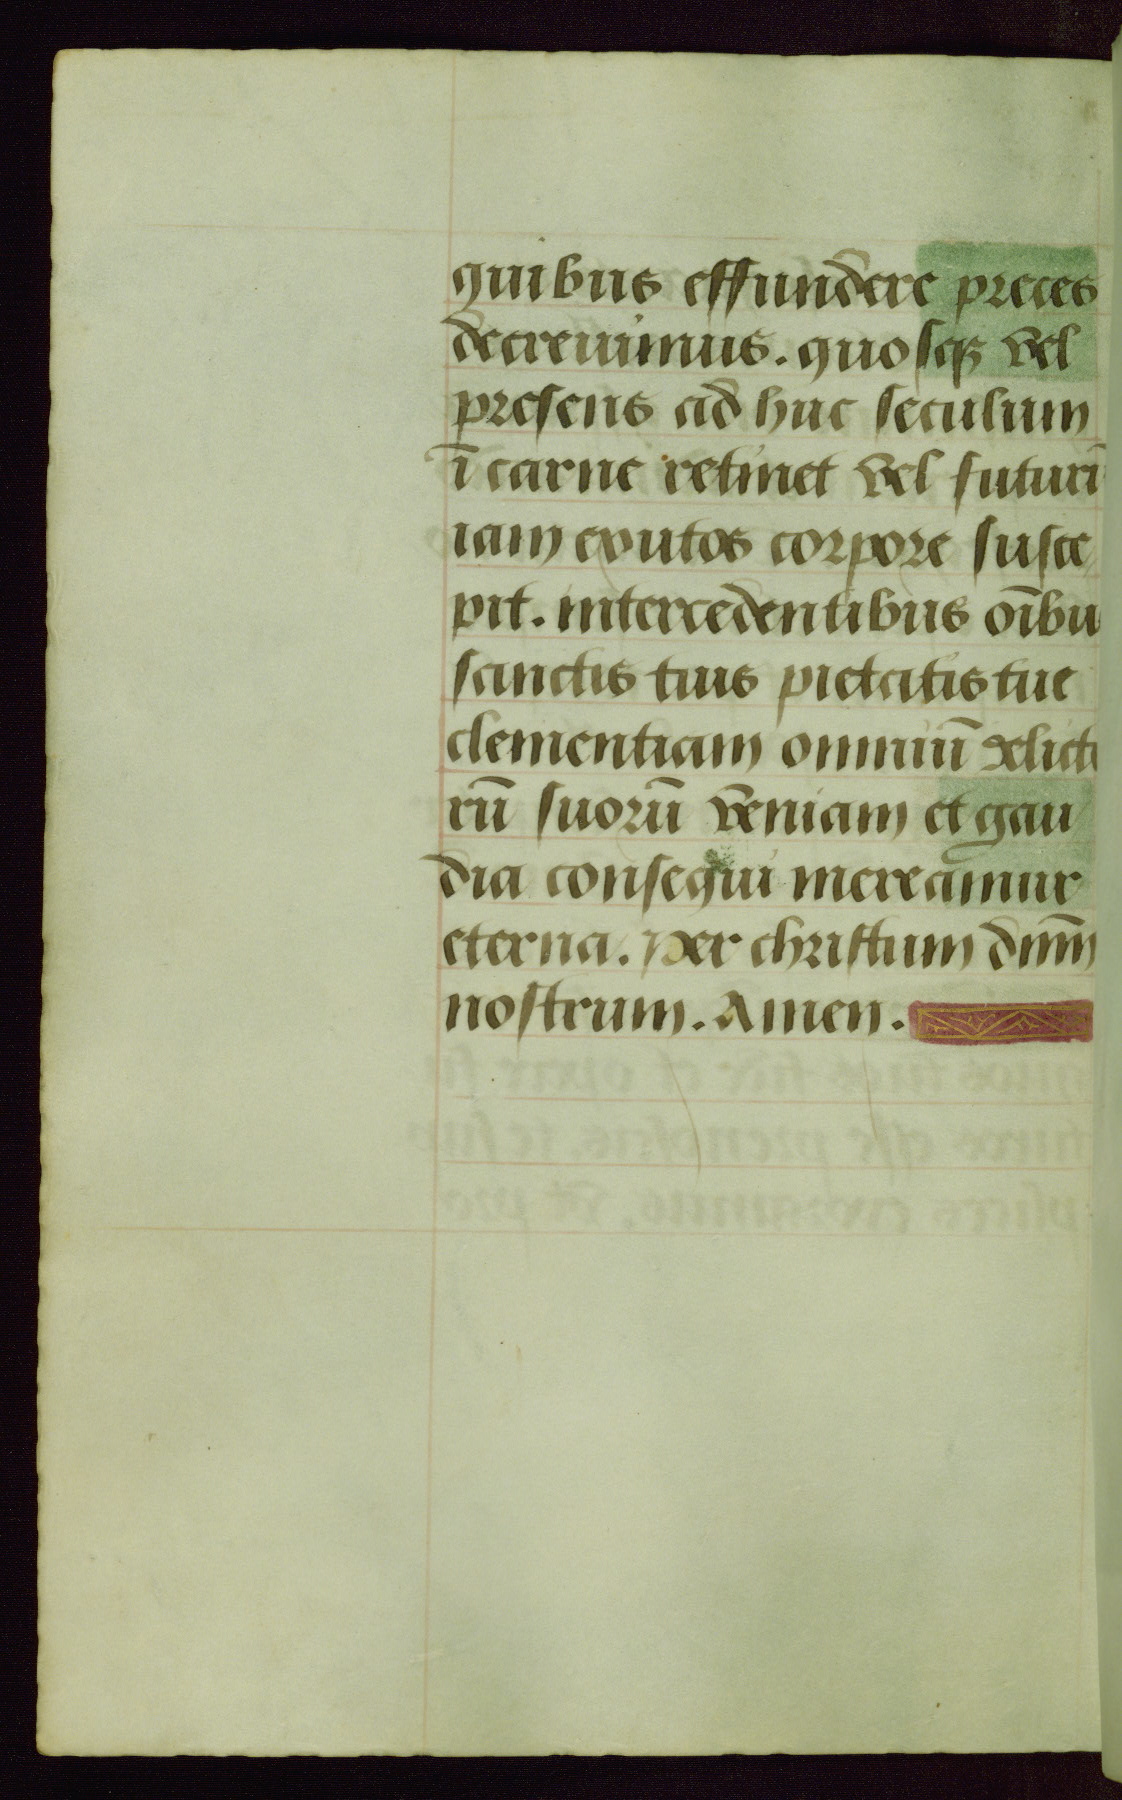 quibus effundere preces
decreuimus. quosqꝫ vel
presens ad huc seculum
ī carne retinet vel futurū
iam exutos corpore susce
pit. intercedentibus oībus
sanctis tuis pietatis tue
clementiam omniū delicto
rū suorū veniam et gau
dia consequi mereamur
eterna. Per christum dnm̄
nostrum. Amen.